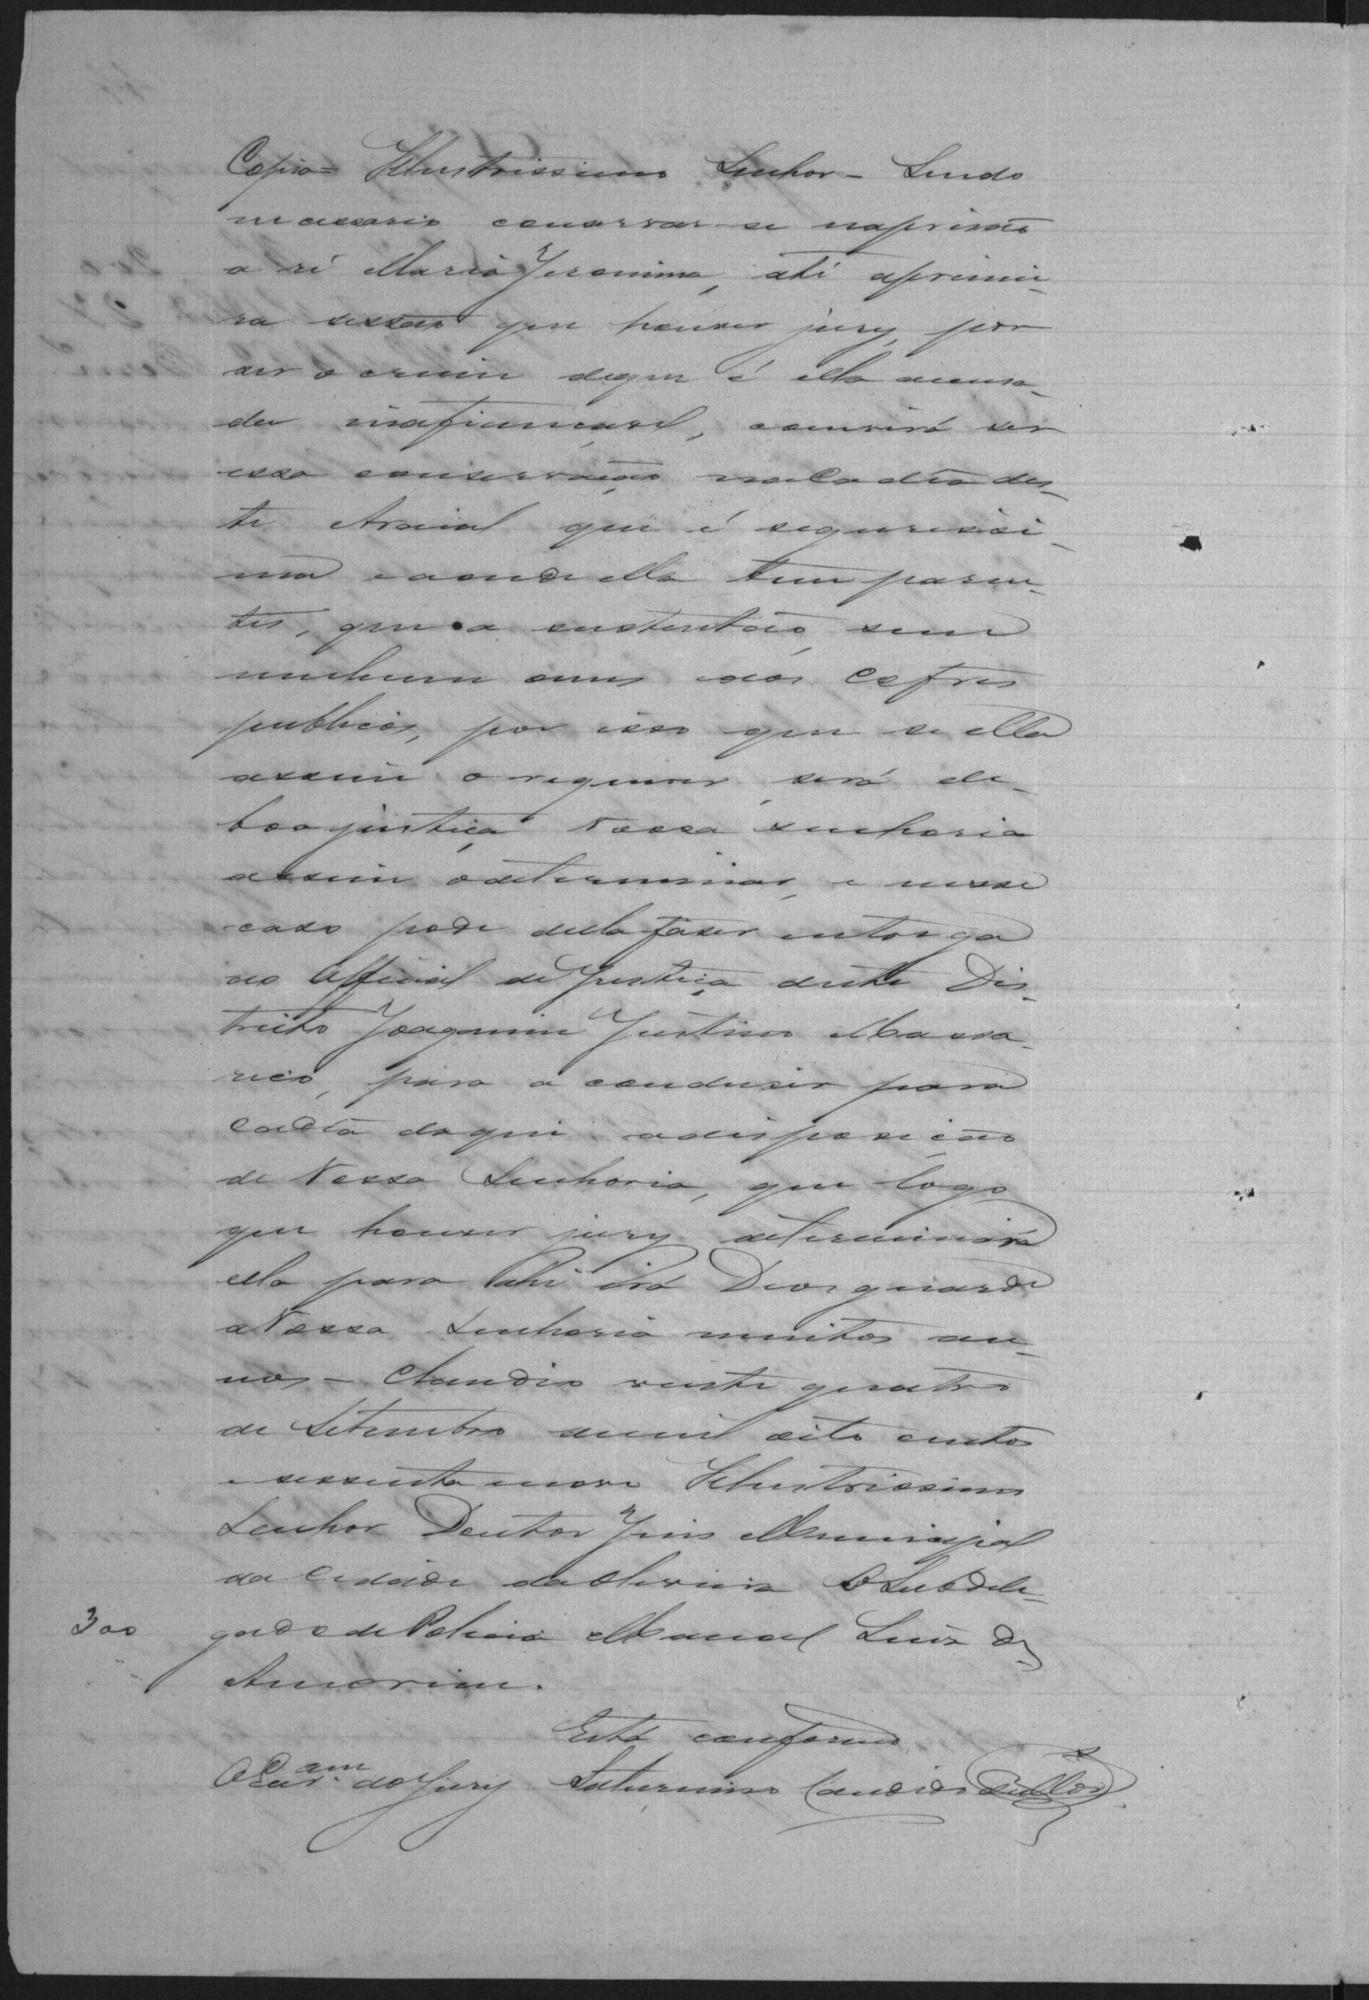 Copia = Illustrissimo Senhor - Sendo
necessario conservar-se na prisão
a ré Maria Jeronima, até a primei-
ra sessão que houver jury, por
ser o crime de que é ella accusa-
da inafiançavel, convirá ser
essa conservação na Cadêa des-
te Arraial que é segurissi-
ma e aonde ella tem paren-
tes, que a sustentão, sem
nenhum onus aos Cofres
publicos, por isso que se ella
assim o requerer, será de
boa justiça Vossa Senhoria
assim o determinar, e nesse
caso pode della faser entrega
ao Official de Justiça deste Dis-
tricto Joaquim Justino
para a condusir para
Cadêa daqui a disposição
de Vossa Senhoria, que logo
que houver jury determinará
ella para ahi irá Deos guarde
a Vossa Senhoria muitos an-
nos - Claudio vinte quatro
de Setembro de mil oito centos
e sessenta nove Illustrissimo
Senhor Doutor Juis Municipal
da Cidade da Oliveira O Subdele-
300 gado de Policia Manoel Luis de
Amorim.
Está conforme
O Escr.am do Jury Saturnino Candido